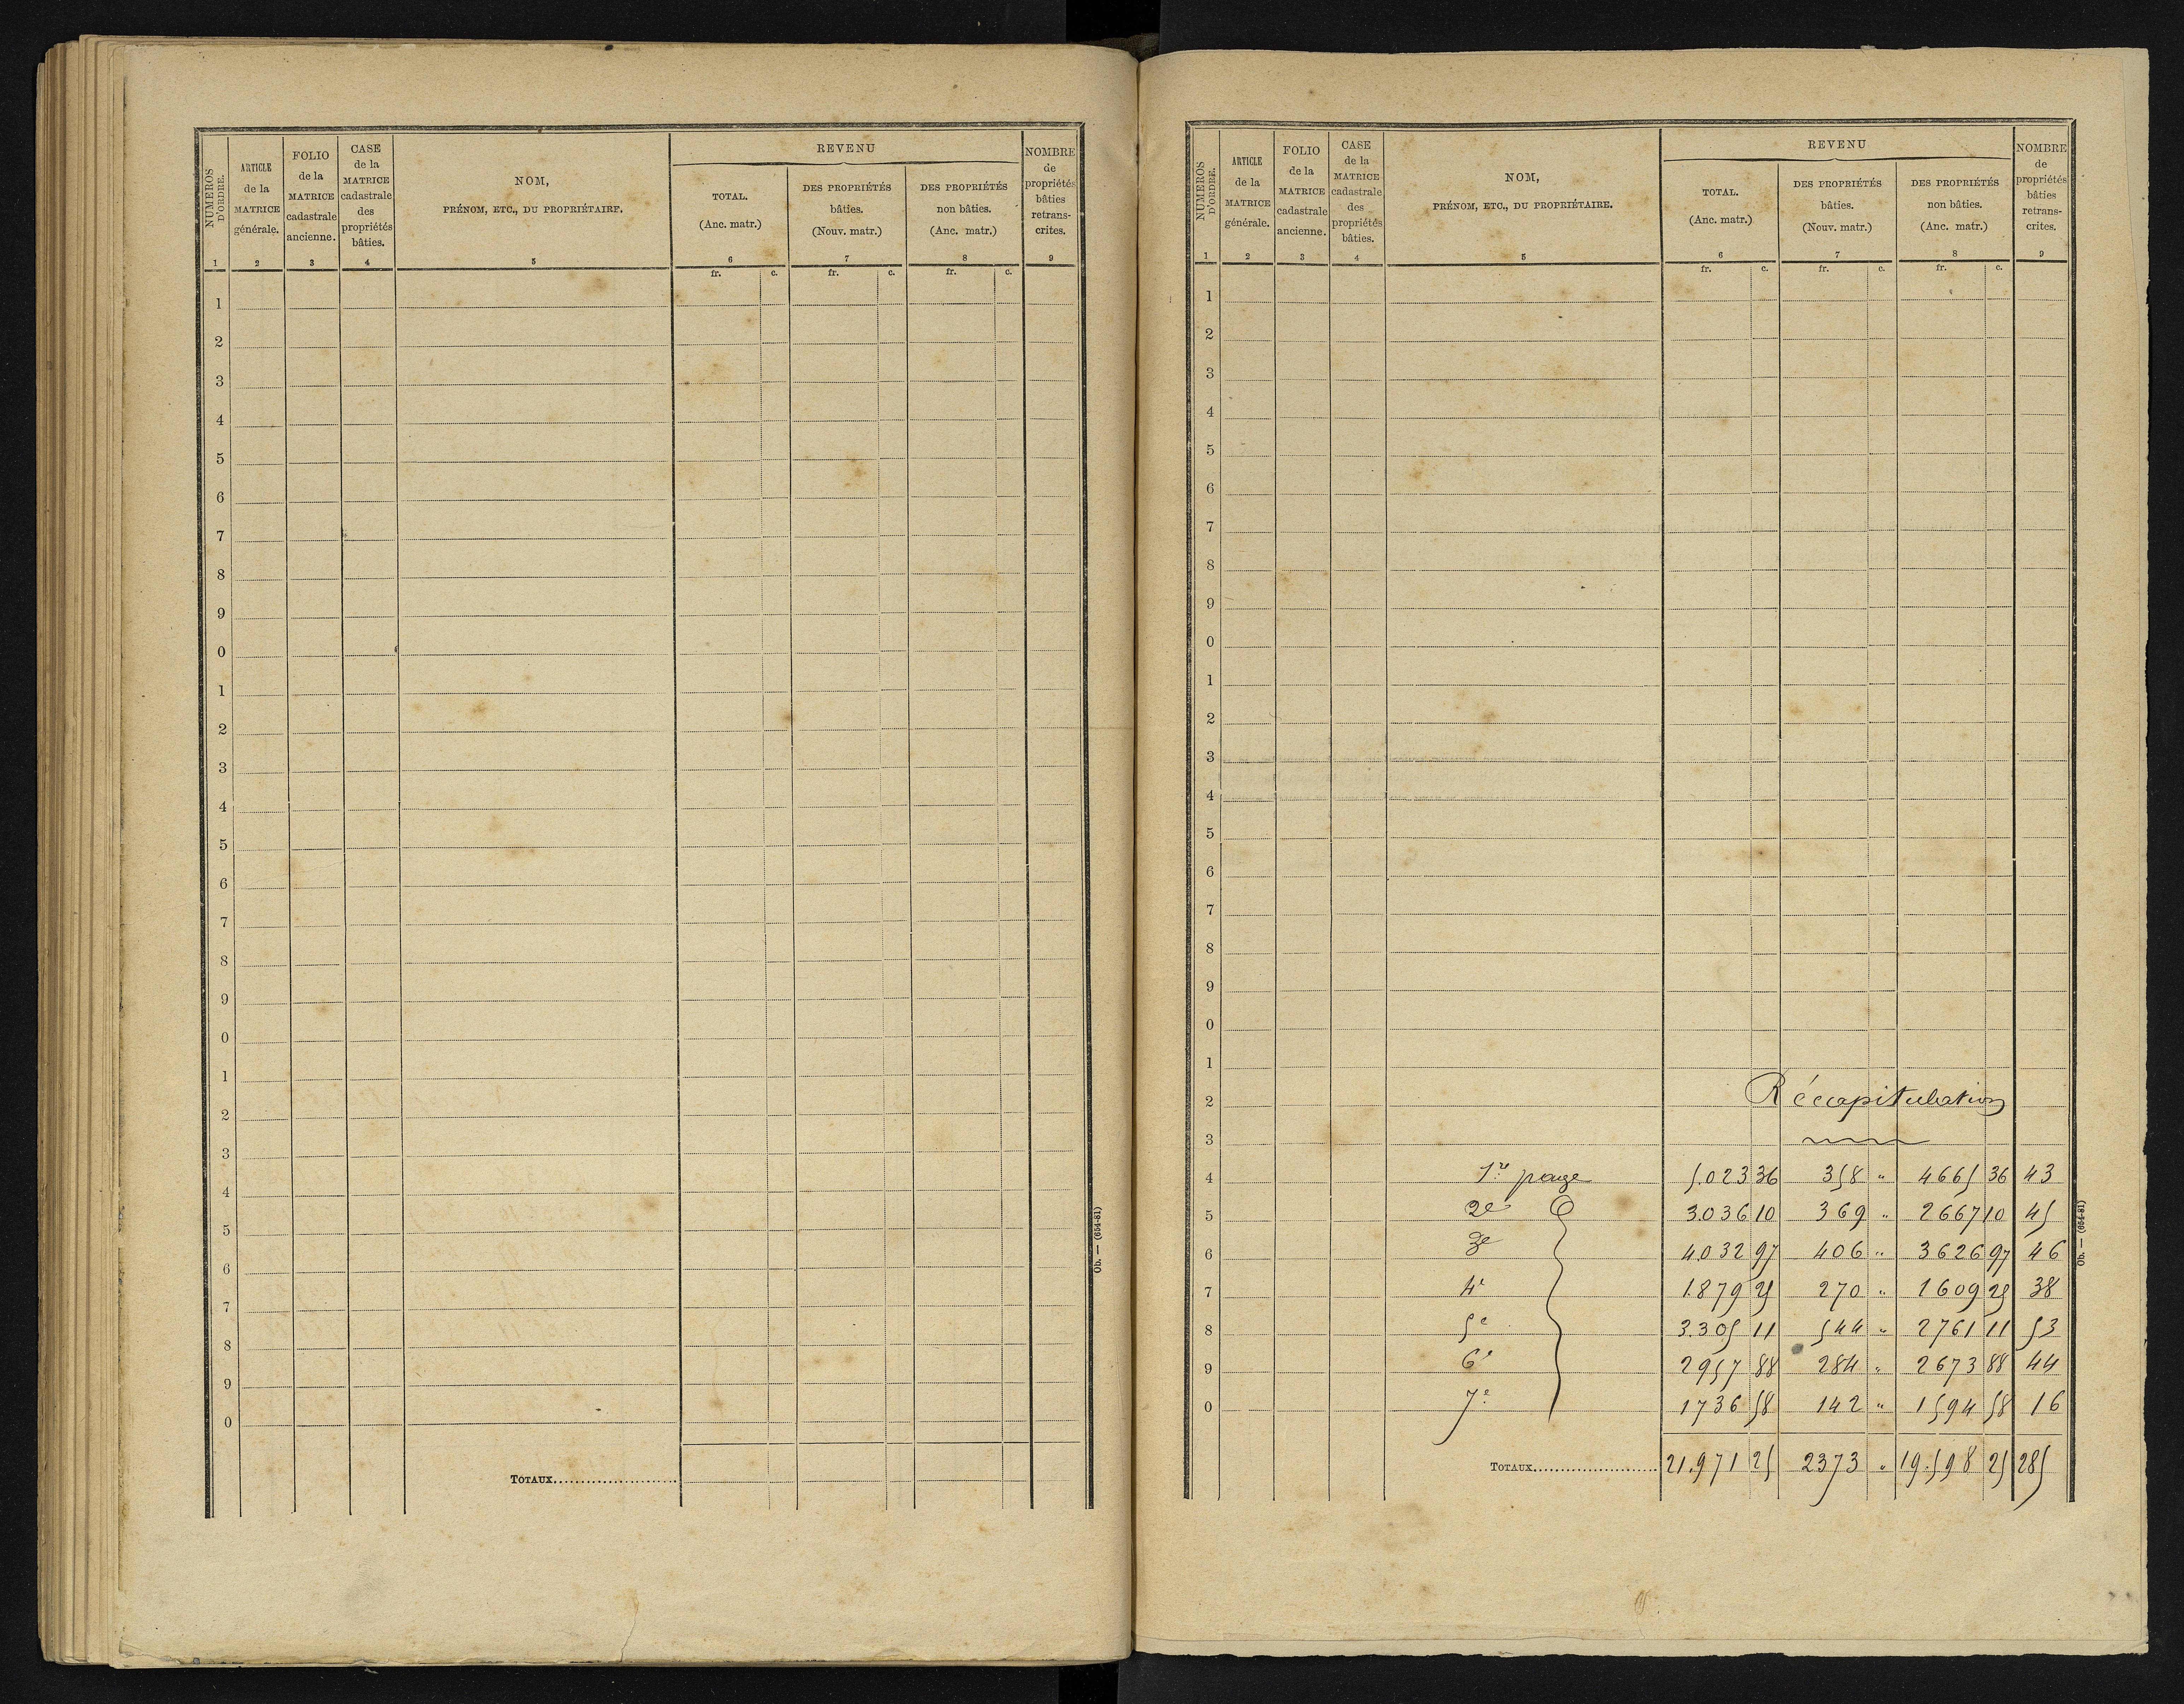 NUMEROS D'ORDRE. ARTICLE de la MATRICE générale. FOLIO de la MATRICE cadastrale ancienne. CASE de la MATRICE cadastrale des propriétés bâties. NOM, PRÉNOM, ETC., DU PROPRIÉTAIRE. REVENU TOTAL. (Anc. matr.) DES PROPRIÉTÉS bâties. (Nouv. matr.) DES PROPRIÉTÉS non bâties. (Anc. matr.) NOMBRE de propriétés bâties retrans- crites.
1 2 3 4 5 6 7 8 9
fr. c. fr. c. fr. c.
1
2
3
4
5
6
7
8
9
0
1
2
3
4
5
6
7
8
9
0
1
2
3
4
5
6
7
8
9
0
TOTAUX
Ob. — (654-81)
NUMEROS D'ORDRE. ARTICLE de la MATRICE générale. FOLIO de la MATRICE cadastrale ancienne. CASE de la MATRICE cadastrale des propriétés bâties. NOM, PRÉNOM, ETC., DU PROPRIÉTAIRE. REVENU TOTAL. (Anc. matr.) DES PROPRIÉTÉS bâties. (Nouv. matr.) DES PROPRIÉTÉS non bâties. (Anc. matr.) NOMBRE de propriétés bâties retrans- crites.
1 2 3 4 5 6 7 8 9
fr. c. fr. c. fr. c.
1
2
3
4
5
6
7
8
9
0
1
2
3
4
5
6
7
8
9
0
1
2 Récapitulation
3
4 1re page 5.023 36 358 " 4665 36 43
5 2e 3.036 10 369 " 2667 10 45
6 3e 4.032 97 406 " 3626 97 46
7 4e 1.879 25 270 " 1609 25 38
8 5e 3.305 11 544 " 2761 11 53
9 6e 2957 88 284 " 2673 88 44
0 7e 1736 58 142 " 1594 58 16
TOTAUX 21.971 25 2373 " 19.598 25 285
Ob. — (654-81)